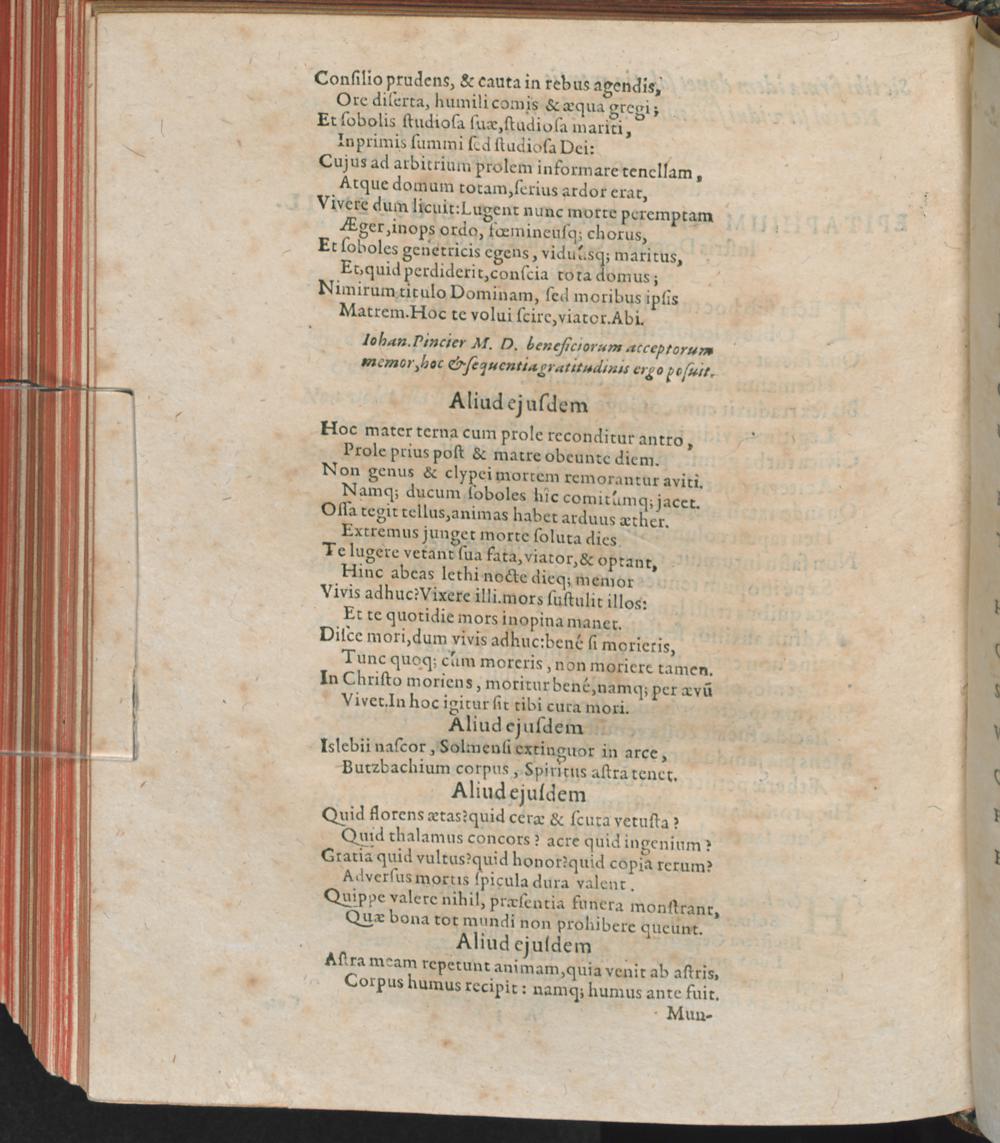 Conſilio prudens, & cauta in rebus agendis,
Ore diſerta, humili comis & æqua gregi;
Et ſobolis ſtudioſa ſuæ,ſtudioſa mariti,
Inprimis ſummi ſed ſtudioſa Dei:
Cujus ad arbitrium prolem informare tenellam,
Atque domum totam,ſerius ardor erat,
Vivere dum licuit:Lugent nunc morte peremptam
Æger,inops ordo, fœmineuſq; chorus,
Et ſoboles genetricis egens, viduúsq; maritus,
Et,quid perdiderit,conſcia tota domus;
Nimirum titulo Dominam, ſed moribus ipſis
Matrem.Hoc te volui ſcire,viator.Abi.
Iohan.Pincier M. D. beneficiorum acceptorum
memor,hoc & ſequentia gratitudinis ergo poſuit.
Aliud ejuſdem
Hoc mater terna cum prole reconditur antro,
Prole prius poſt & matre obeunte diem.
Non genus & clypei mortem remorantur aviti,
Namq; ducum ſoboles hîc comitúmq; jacet.
Oſſa tegit tellus,animas habet arduus æther.
Extremus junget morte ſoluta dies
Te lugere vetant ſua fata, viator,& optant,
Hinc abeas lethi nocte dieq; memor
Vivis adhuc?Vixere illi.mors ſuſtulit illos:
Et te quotidie mors inopina manet.
Diſce mori,dum vivis adhuc:bené ſi morieris,
Tunc quoq; cúm moreris, non moriere tamen.
In Chriſto moriens, moritur bené,namq; per ævū
Vivet.In hoc igitur ſit tibi cura mori.
Aliud ejuſdem
Islebii naſcor, Solmenſi extinguor in arce,
Butzbachium corpus, Spiritus aſtra tenet.
Aliud ejuſdem
Quid florens ætas?quid ceræ & ſcuta vetuſta?
Quid thalamus concors? acre quid ingenium?
Gratia quid vultus?quid honor?quid copia rerum?
Adverſus mortis ſpicula dura valent.
Quippe valere nihil, præſentia funera monſtrant,
Quæ bona tot mundi non prohibere queunt.
Aliud ejuſdem
Aſtra meam repetunt animam,quia venit ab aſtris,
Corpus humus recipit: namq; humus ante fuit.
Mun-